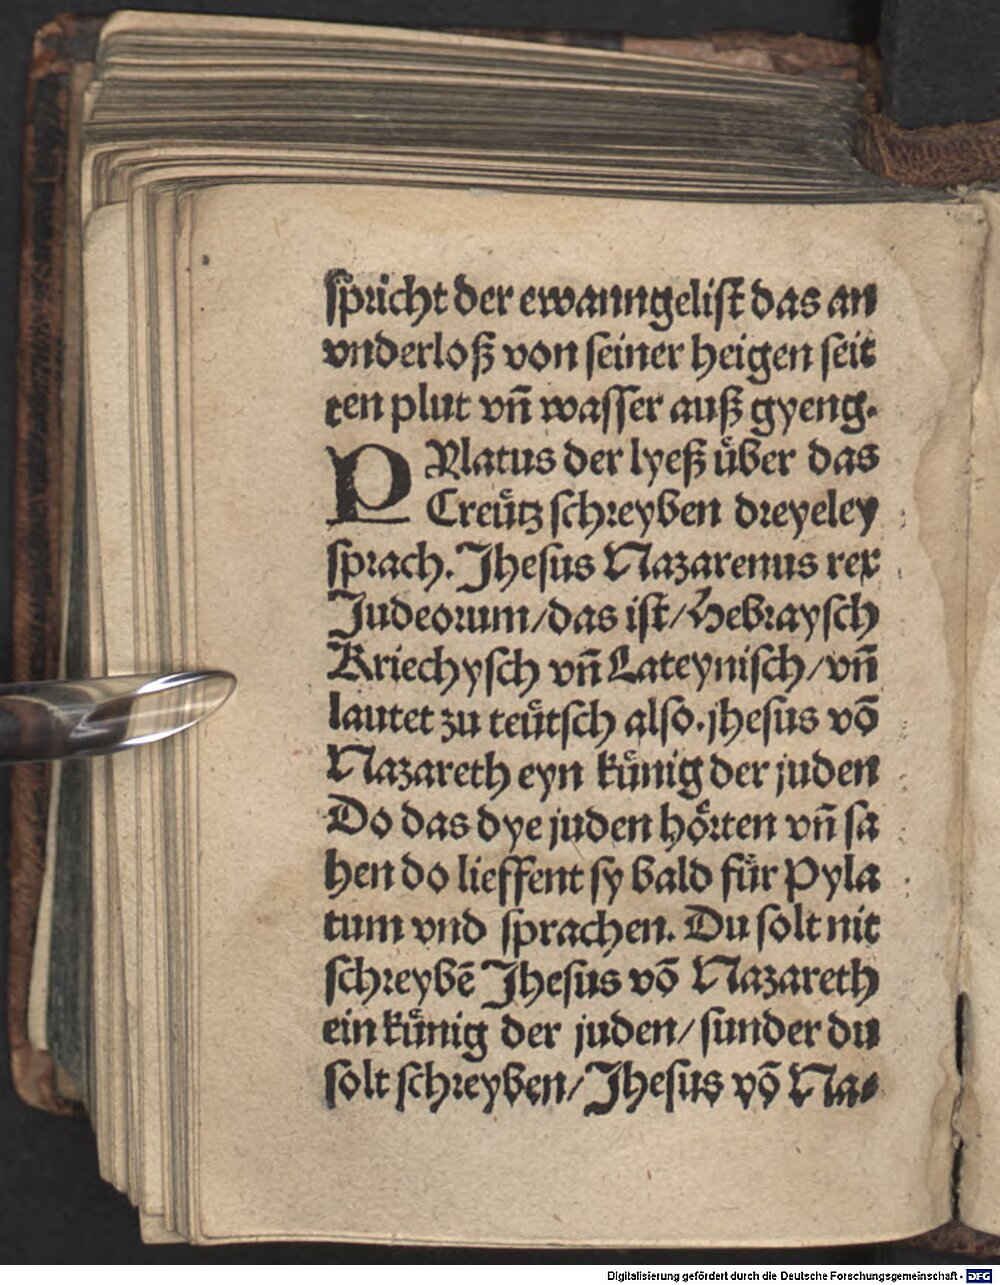 spricht der ewanngelist das an
vnderloß von seiner heigen seit
ten plut vn̄ wasser auß gyeng.
PYlatus der lyeß uͤber das
Creuͤtz schreyben dreyeley
sprach. Jhesus Nazarenus rex
Judeorum/das ist/Hebraysch
Kriechysch vn̄ Lateynisch/vn̄
lautet zu teuͤtsch also. jhesus vō
Nazareth eyn kuͤnig der juden
Do das dye juden hoͤrten vn̄ sa
hen do lieffent sy bald fuͤr Pyla
tum vnd sprachen. Du solt nit
schreybē Jhesus vō Nazareth
ein kuͤnig der juden/sunder du
solt schreyben/Jhesus vō Na⸗
Digitalisierung gefördert durch die Deutsche Forschungsgemeinschaft - DFG